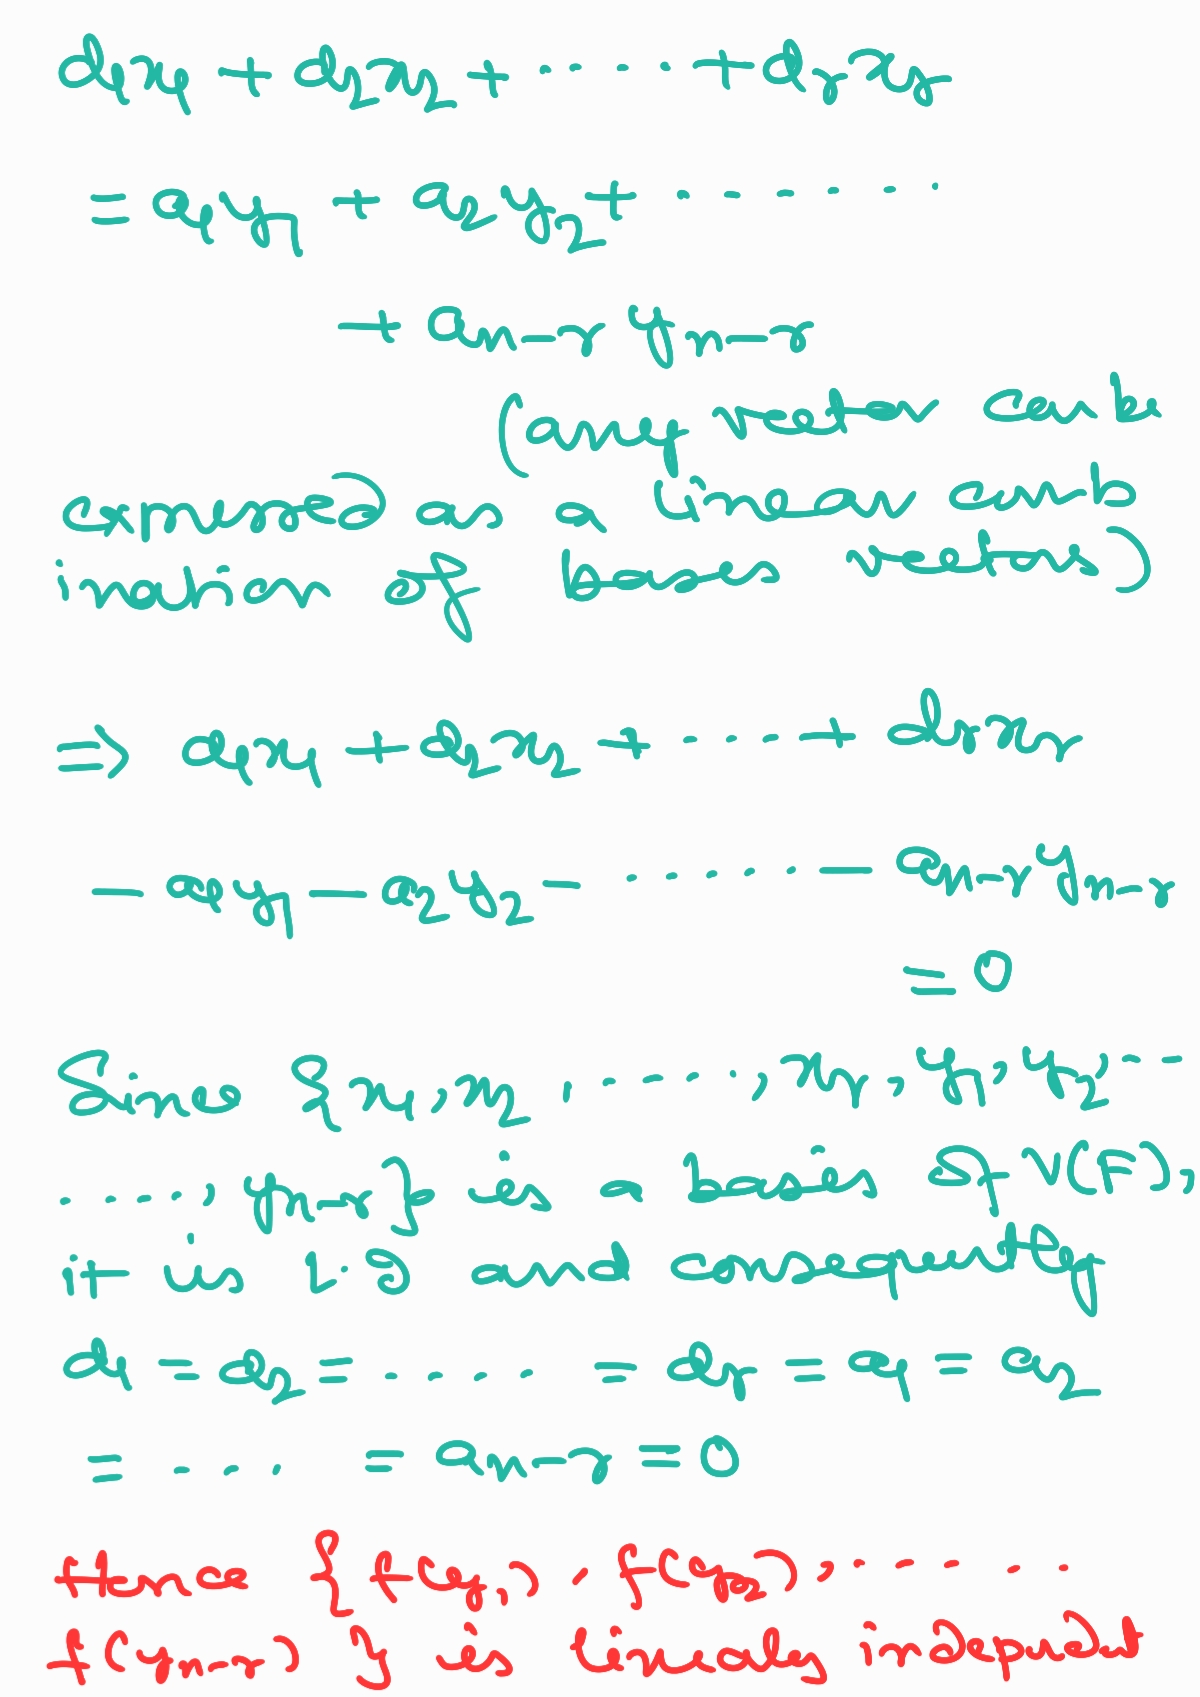 d₁x₁ + d₂x₂ + ..... + dᵣxᵣ
= a₁y₁ + a₂y₂ + ......
+ aₙ₋ᵣ yₙ₋ᵣ
(any vector can be
expressed as a linear comb
ination of bases vectors)
⇒ d₁x₁ + d₂x₂ + .... + dᵣxᵣ
- a₁y₁ - a₂y₂ - ..... - aₙ₋ᵣyₙ₋ᵣ
= 0
Since {x₁, x₂, ....., xᵣ, y₁, y₂, ...
....., yₙ₋ᵣ} is a basis of V(F),
it is L.I and consequently
d₁ = d₂ = .... = dᵣ = a₁ = a₂
= ... = aₙ₋ᵣ = 0
Hence {f(y₁), f(y₂), .....
f(yₙ₋ᵣ)} is linearly independent